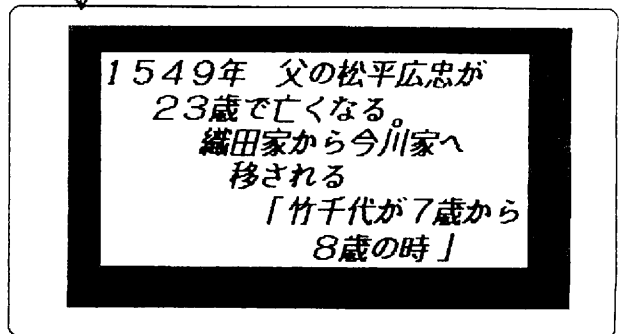 1549年 父の松平広忠が
23歳で亡くなる。
織田家から今川家へ
移される
「竹千代が7歳から
8歳の時」